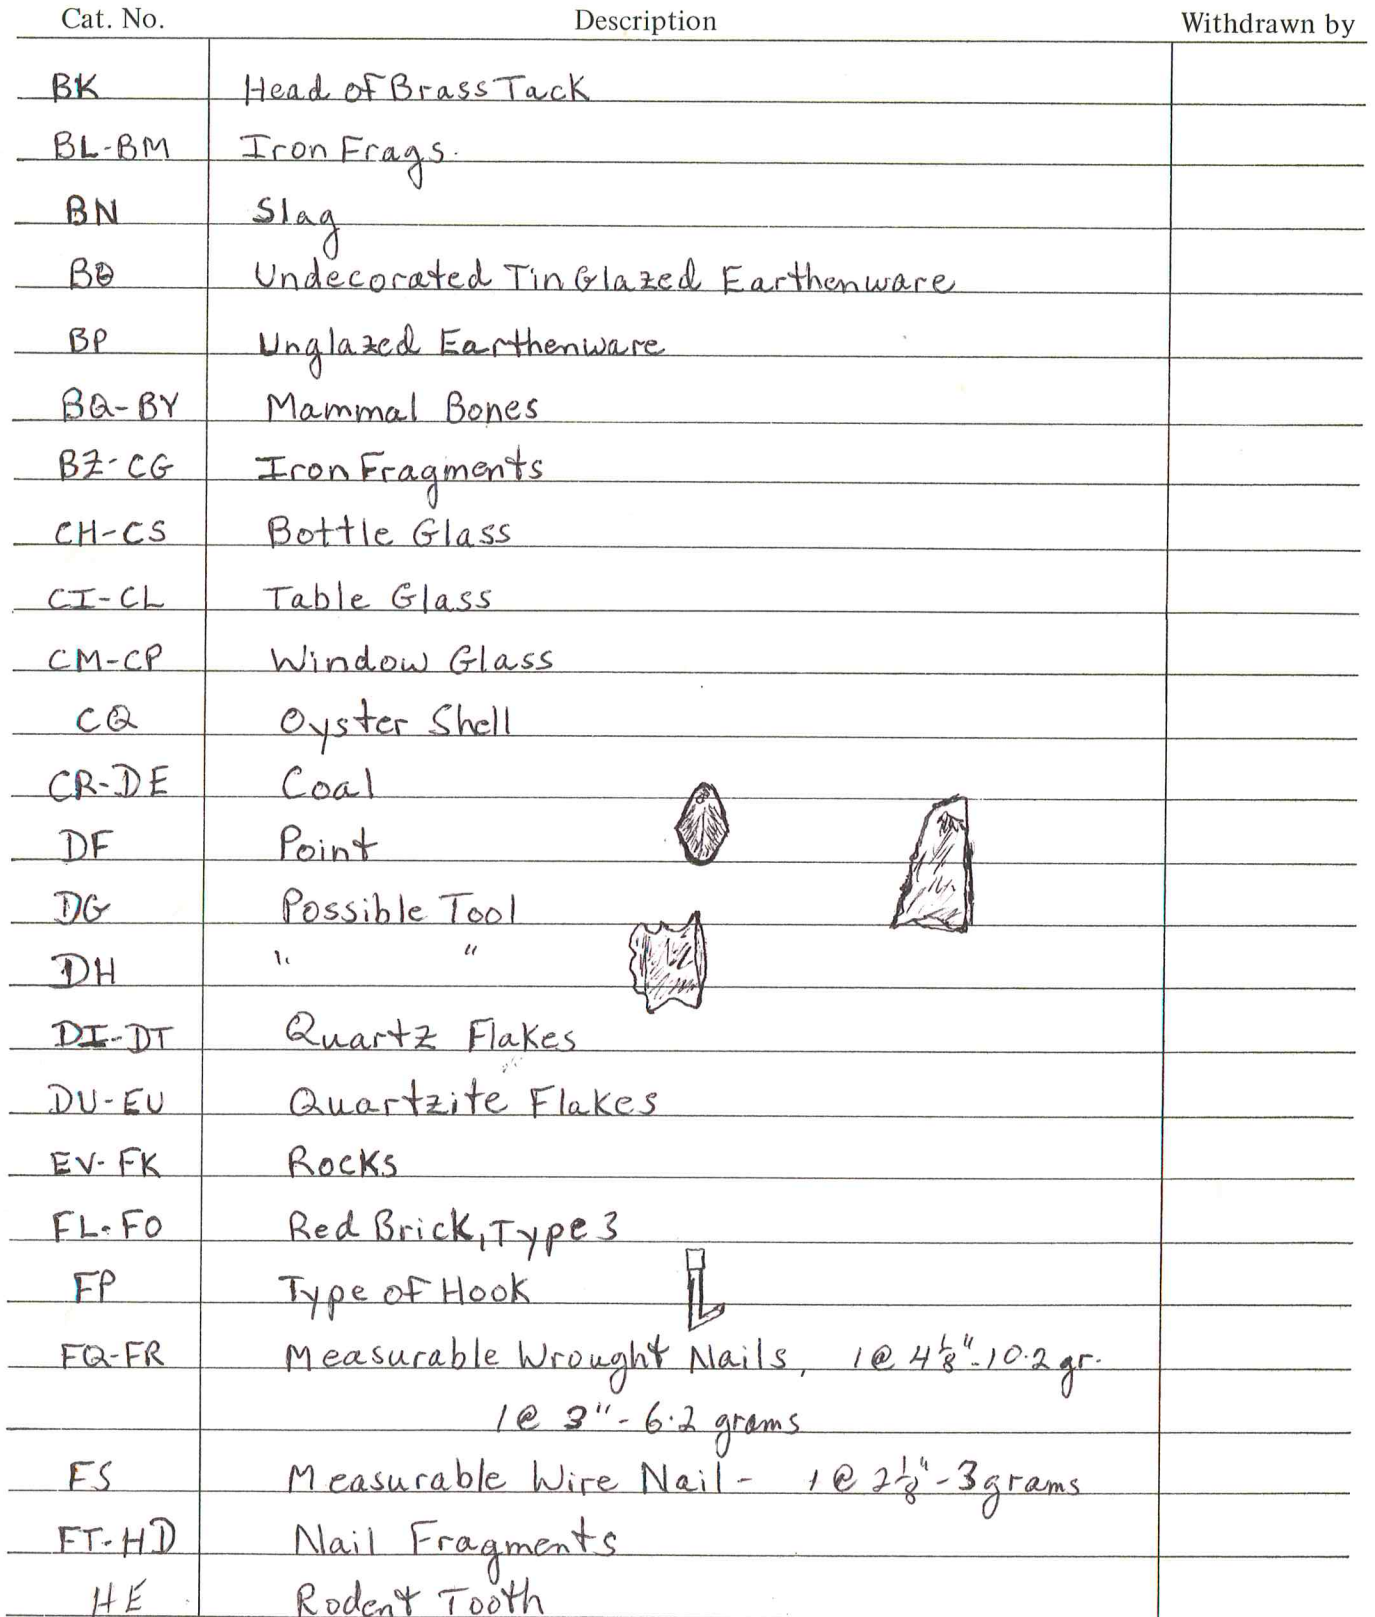 Cat. No. Description Withdrawn by
BK Head of Brass Tack
BL-BM Iron Frags.
BN Slag
BO Undecorated Tin Glazed Earthenware
BP Unglazed Earthenware
BQ-BY Mammal Bones
BZ-CG Iron Fragments
CH-CS Bottle Glass
CI-CL Table Glass
CM-CP Window Glass
CQ Oyster Shell
CR-DE Coal
DF Point
DG Possible Tool
DH " "
DI-DT Quartz Flakes
DU-EU Quartzite Flakes
EV-FK Rocks
FL-FO Red Brick, Type 3
FP Type of Hook
FQ-FR Measurable Wrought Nails, 1@ 4 1/8"-10.2 gr.
1@ 3"- 6.2 grams
FS Measurable Wire Nail - 1@ 2 1/8"-3 grams
FT-HD Nail Fragments
HE Rodent Tooth